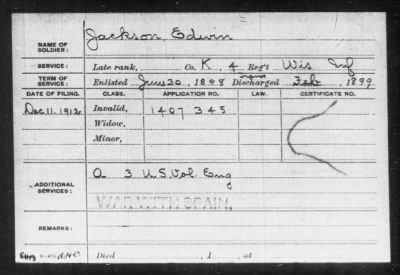 Jackson Edwin
NAME OF SOLDIER:
SERVICE: Late rank, Co. K, 4 Reg't Wis Inf
TERM OF SERVICE: Enlisted June 20, 1898 Discharged Feb, 1899
DATE OF FILING. CLASS. APPLICATION NO. LAW. CERTIFICATE NO.
Dec. 11. 1912 Invalid, 1407345
Widow,
Minor,
ADDITIONAL SERVICES: A 3 U.S. Vol. Eng
WAR WITH SPAIN.
REMARKS:
Died , 1 , at